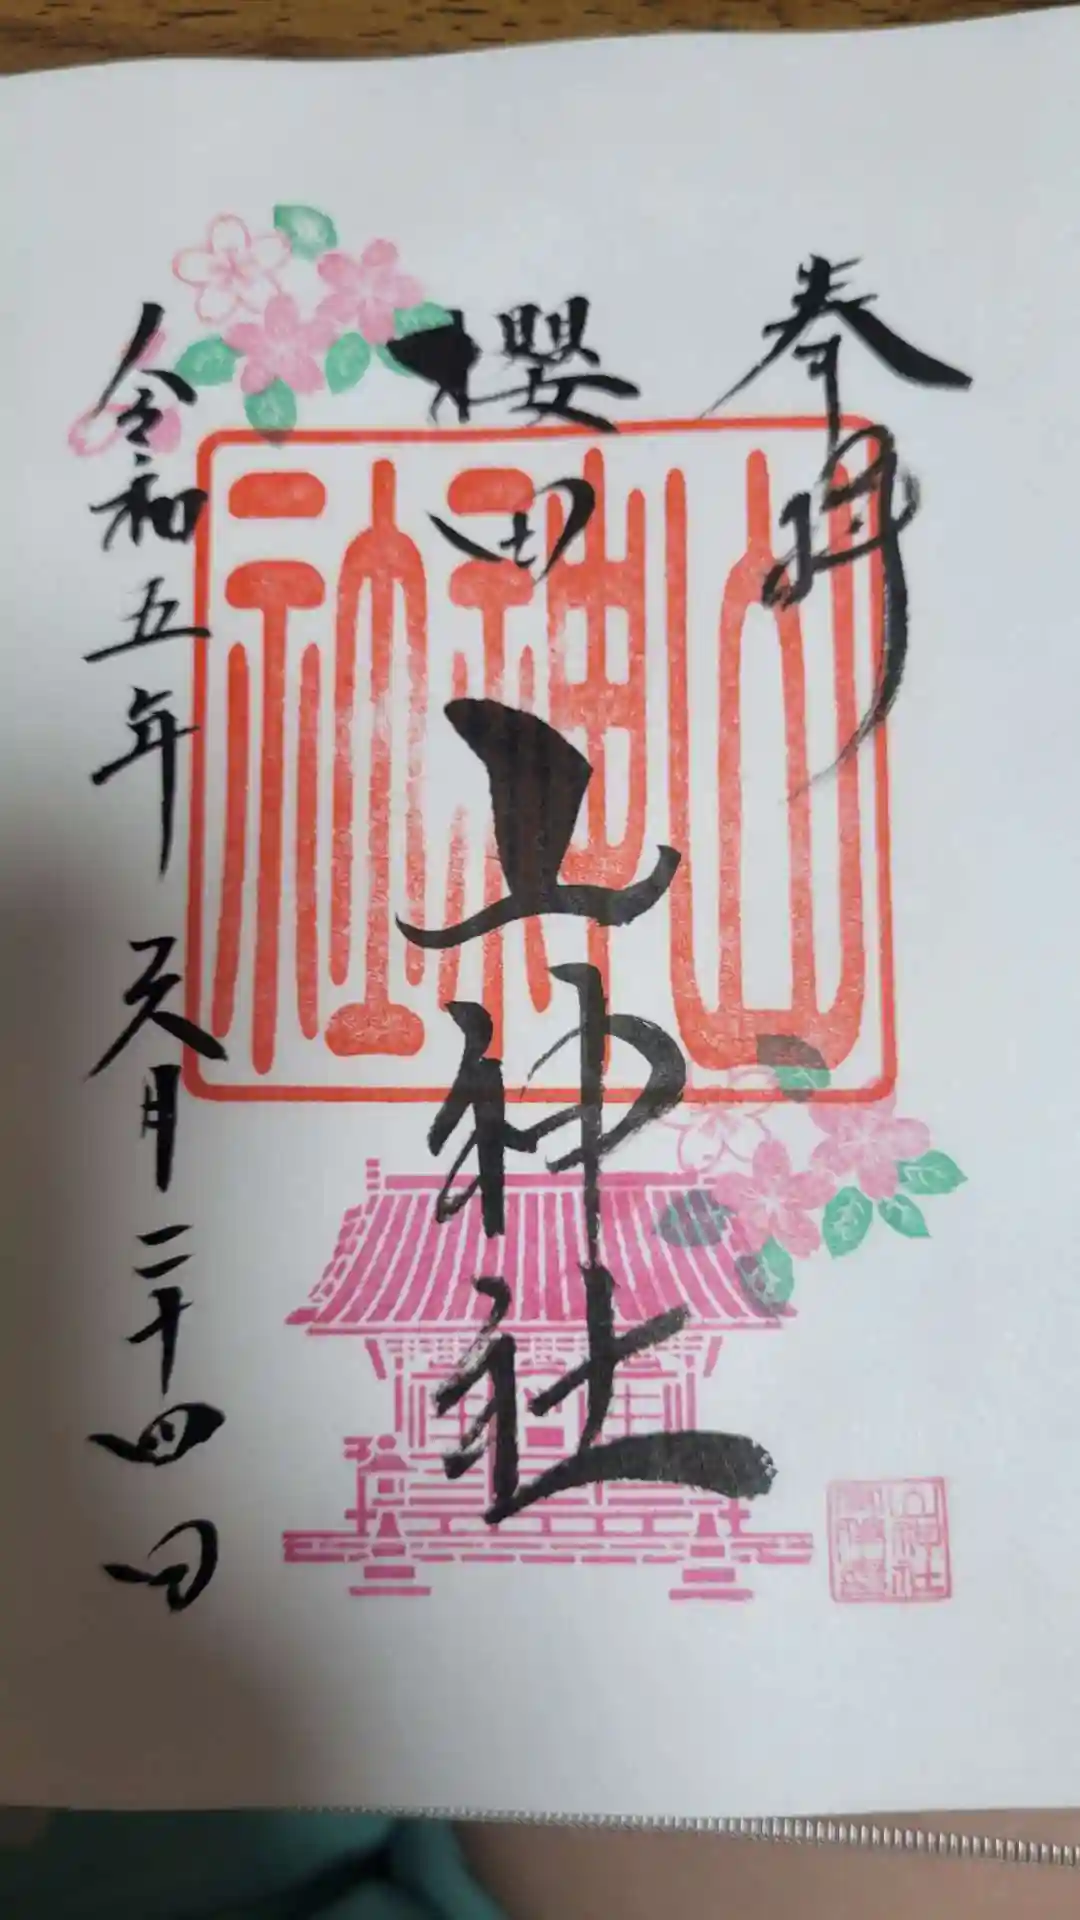 奉拝
櫻田山神社
山神社
令和五年六月二十四日